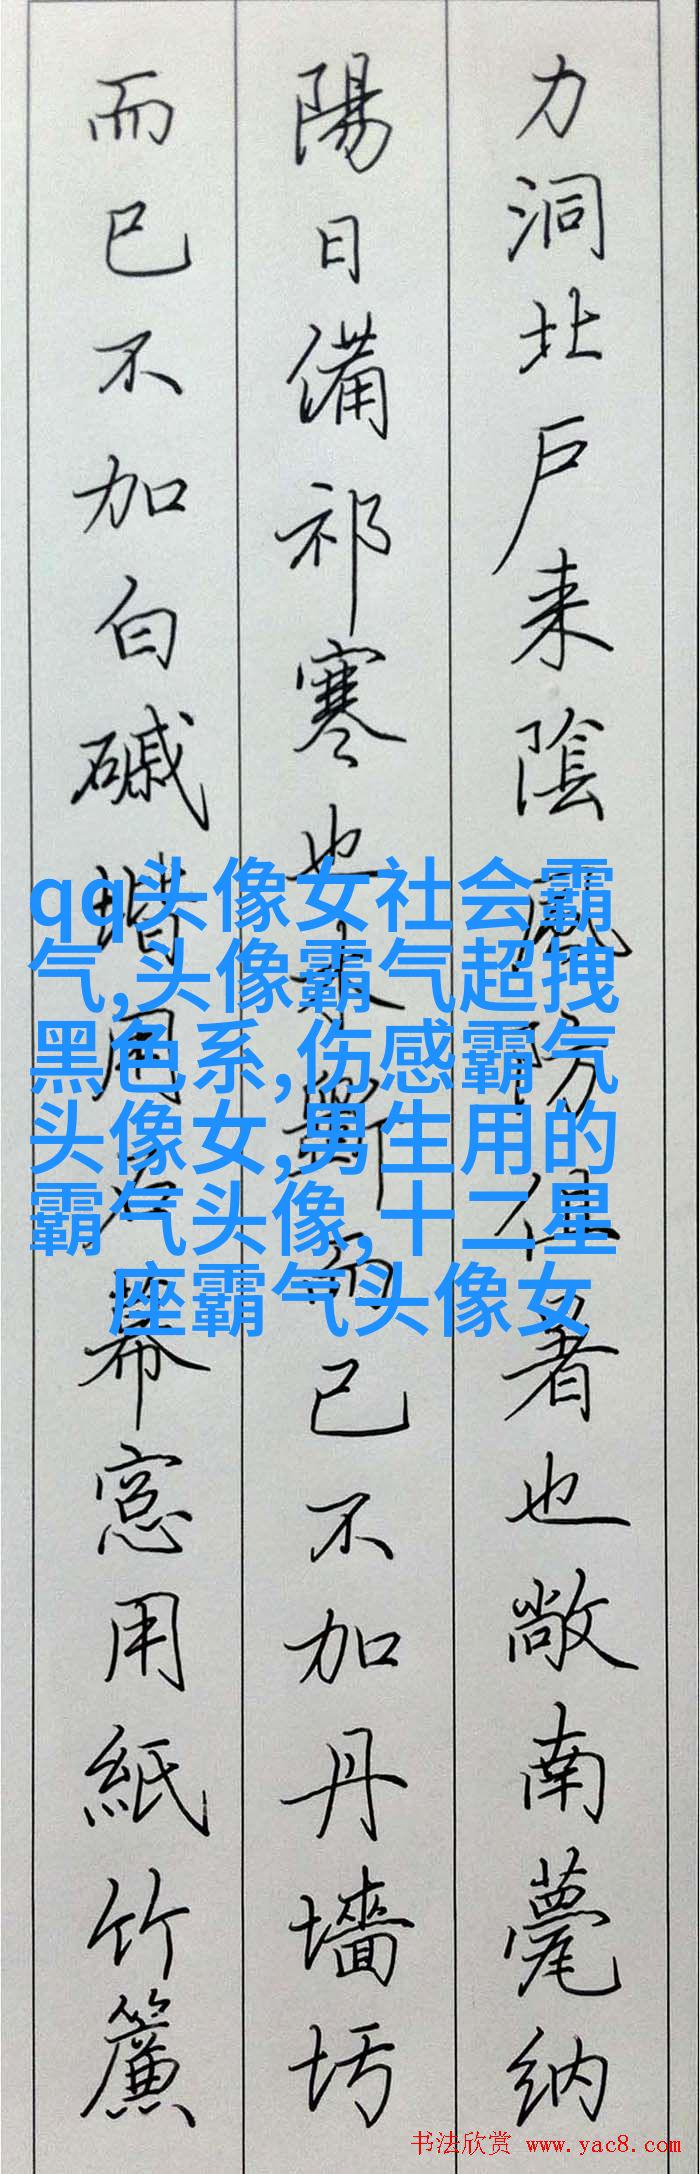 力洞北戶来陰風防徂暑也敞南甍纳
陽日備祁寒也木斲而已不加丹墻圬
而已不加白磩堦用石幂窓用紙竹簾
qq头像女社会霸
气,头像霸气超拽
黑色系,伤感霸气
头像女,男生用的
霸气头像,十二星
座霸气头像女
书法欣赏 www.yac8.com